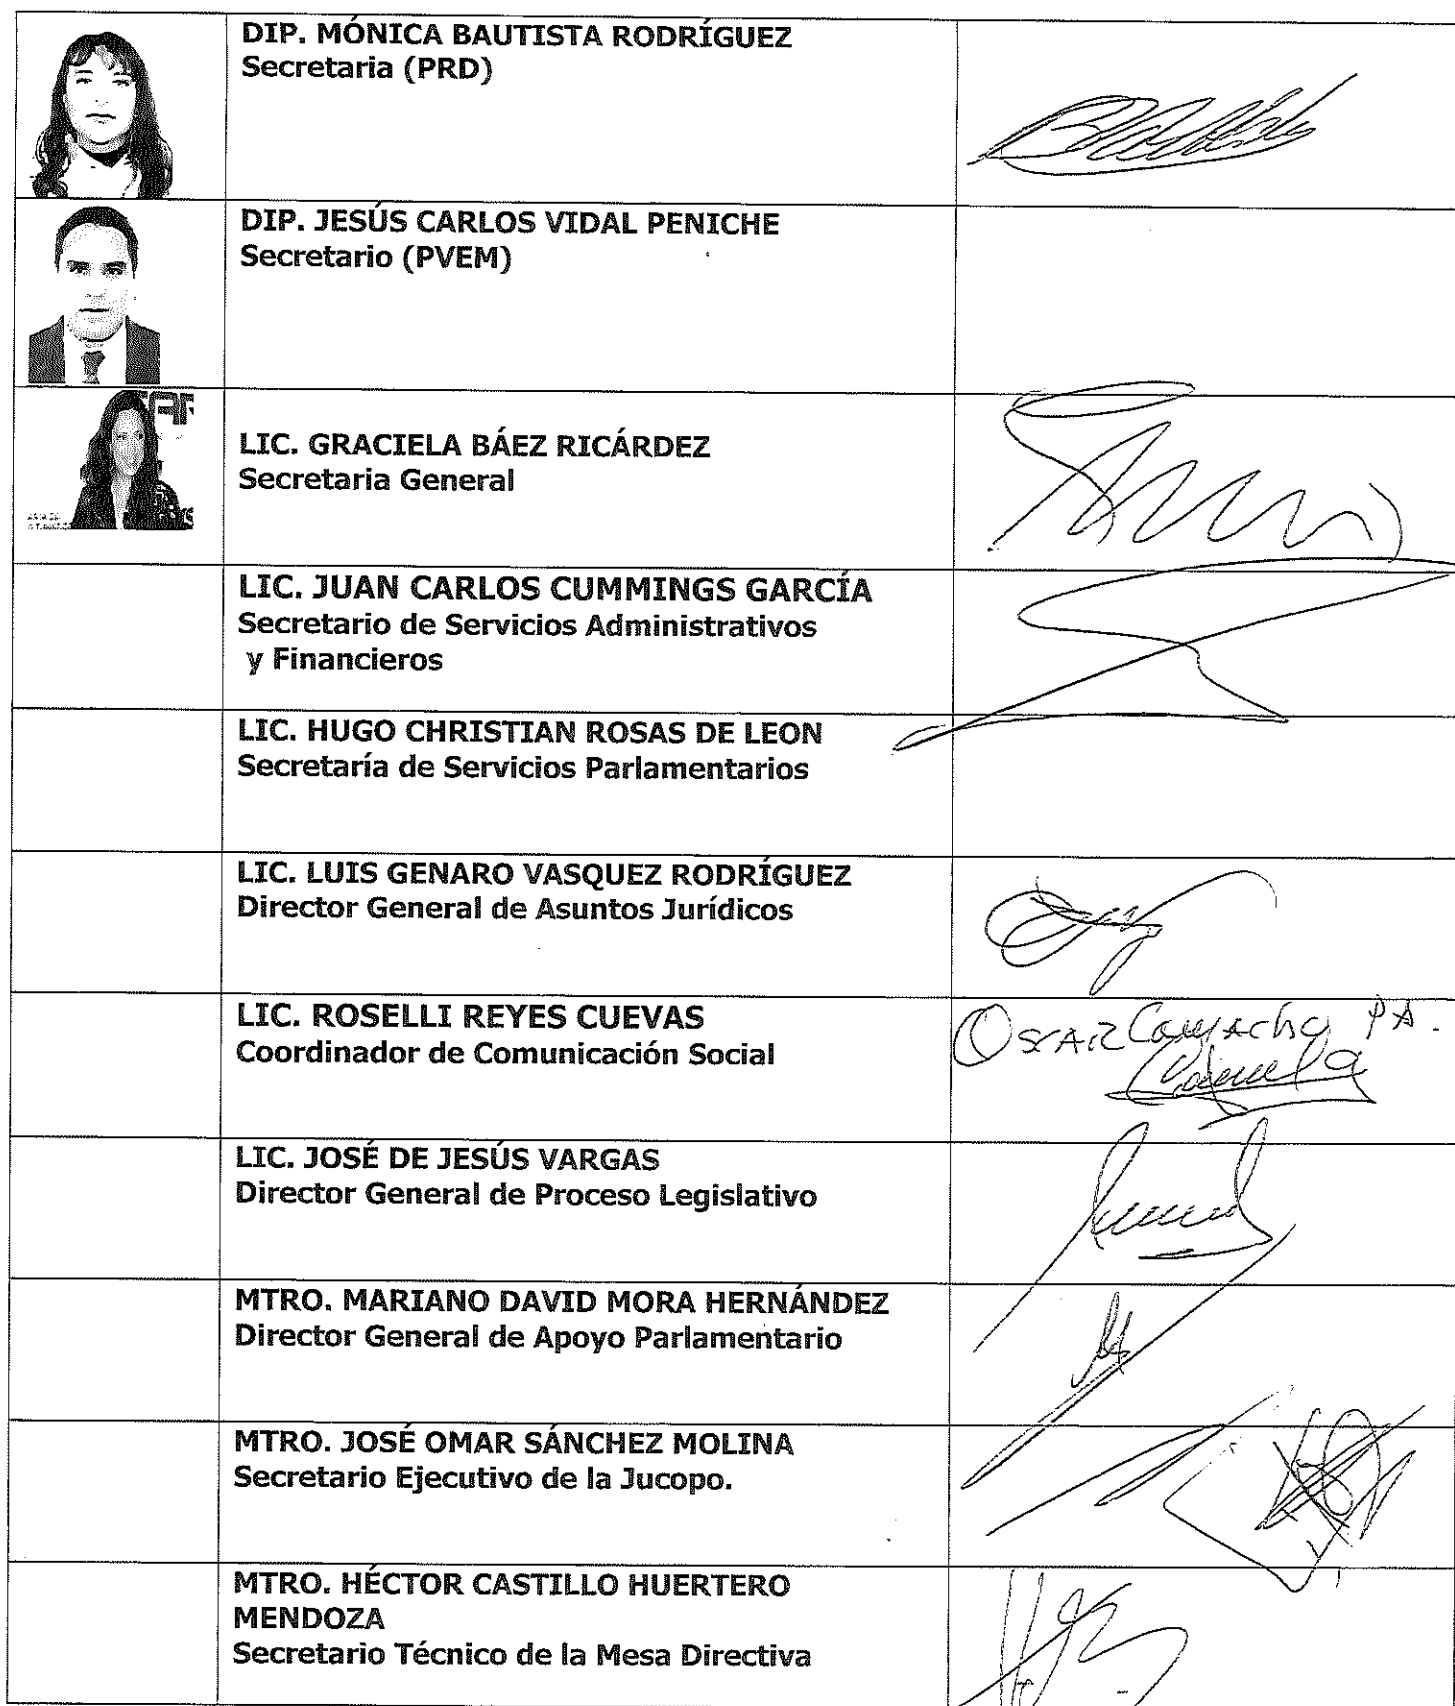 DIP. MÓNICA BAUTISTA RODRÍGUEZ
Secretaria (PRD)
DIP. JESÚS CARLOS VIDAL PENICHE
Secretario (PVEM)
LIC. GRACIELA BÁEZ RICÁRDEZ
Secretaria General
LIC. JUAN CARLOS CUMMINGS GARCÍA
Secretario de Servicios Administrativos
y Financieros
LIC. HUGO CHRISTIAN ROSAS DE LEON
Secretaría de Servicios Parlamentarios
LIC. LUIS GENARO VASQUEZ RODRÍGUEZ
Director General de Asuntos Jurídicos
LIC. ROSELLI REYES CUEVAS
Coordinador de Comunicación Social
Oscar Camacho PA.
LIC. JOSÉ DE JESÚS VARGAS
Director General de Proceso Legislativo
MTRO. MARIANO DAVID MORA HERNÁNDEZ
Director General de Apoyo Parlamentario
MTRO. JOSÉ OMAR SÁNCHEZ MOLINA
Secretario Ejecutivo de la Jucopo.
MTRO. HÉCTOR CASTILLO HUERTERO
MENDOZA
Secretario Técnico de la Mesa Directiva